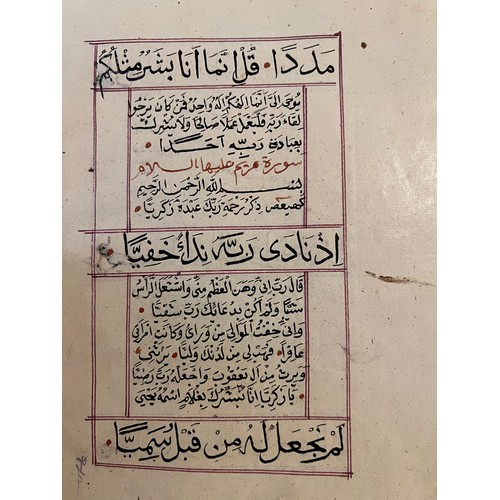 مَدَدًا • قُلْ اِنَّمَا اَنَا بَشَرٌ مِثْلُكُمْ
يُوحٰى اِلَىَّ اَنَّمَا اِلٰهُكُمْ اِلٰهٌ وَاحِدٌ فَمَنْ كَانَ يَرْجُوا
لِقَاءَ رَبِّهِ فَلْيَعْمَلْ عَمَلًا صَالِحًا وَلَا يُشْرِكْ
بِعِبَادَةِ رَبِّهِ اَحَدًا •
سورة مريم عليها السلام
بِسْمِ اللّٰهِ الرَّحْمٰنِ الرَّحِيمِ
كهيعص ذِكْرُ رَحْمَةِ رَبِّكَ عَبْدَهُ زَكَرِيَّا •
اِذْ نَادٰى رَبَّهُ نِدَاءً خَفِيًّا •
قَالَ رَبِّ اِنِّى وَهَنَ الْعَظْمُ مِنِّى وَاشْتَعَلَ الرَّأْسُ
شَيْبًا وَلَمْ اَكُنْ بِدُعَائِكَ رَبِّ شَقِيًّا •
وَاِنِّى خِفْتُ الْمَوَالِىَ مِنْ وَرَاىِٔ وَكَانَتِ امْرَاَتِى
عَاقِرًا • فَهَبْ لِى مِنْ لَدُنْكَ وَلِيًّا • يَرِثُنِى
وَيَرِثُ مِنْ اٰلِ يَعْقُوبَ وَاجْعَلْهُ رَبِّ رَضِيًّا
• يَا زَكَرِيَّا اِنَّا نُبَشِّرُكَ بِغُلَامٍ اسْمُهُ يَحْيٰى
لَمْ نَجْعَلْ لَهُ مِنْ قَبْلُ سَمِيًّا •